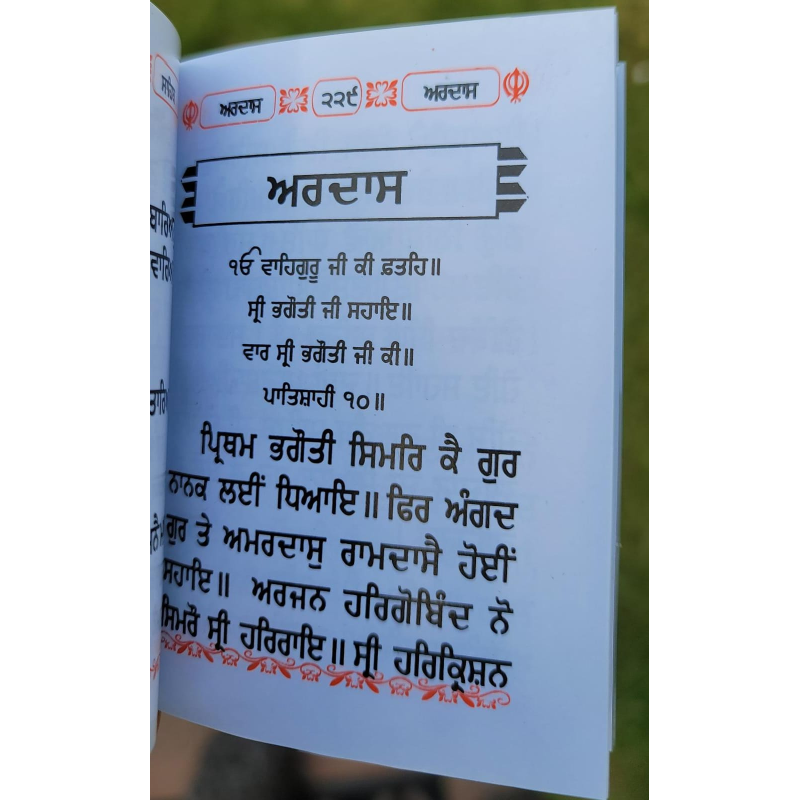 ਅਰਦਾਸ ੨੨੯ ਅਰਦਾਸ
ਅਰਦਾਸ
ੴ ਵਾਹਿਗੁਰੂ ਜੀ ਕੀ ਫ਼ਤਹਿ॥
ਸ੍ਰੀ ਭਗੌਤੀ ਜੀ ਸਹਾਇ॥
ਵਾਰ ਸ੍ਰੀ ਭਗੌਤੀ ਜੀ ਕੀ॥
ਪਾਤਿਸ਼ਾਹੀ ੧੦॥
ਪ੍ਰਿਥਮ ਭਗੌਤੀ ਸਿਮਰਿ ਕੈ ਗੁਰ
ਨਾਨਕ ਲਈਂ ਧਿਆਇ॥ ਫਿਰ ਅੰਗਦ
ਗੁਰ ਤੇ ਅਮਰਦਾਸੁ ਰਾਮਦਾਸੈ ਹੋਈਂ
ਸਹਾਇ॥ ਅਰਜਨ ਹਰਿਗੋਬਿੰਦ ਨੋ
ਸਿਮਰੌ ਸ੍ਰੀ ਹਰਿਰਾਇ॥ ਸ੍ਰੀ ਹਰਿਕ੍ਰਿਸ਼ਨ